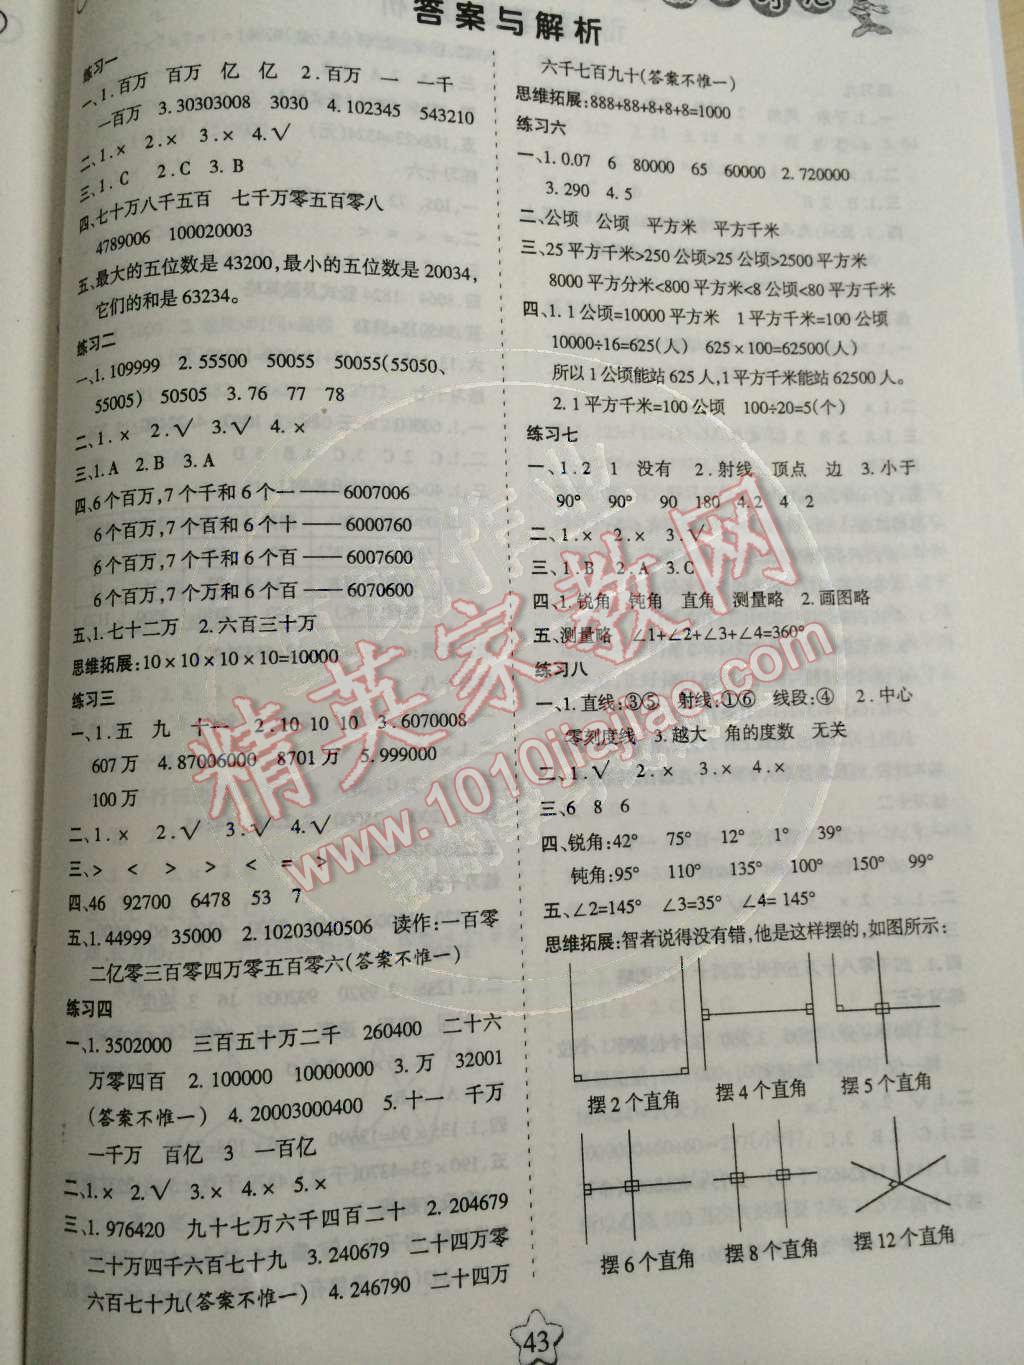 答案与解析
练习一
一、1.百万 百万 亿 亿 2.百万 一 一千
一百万 3.30303008 3030 4.102345 543210
二、1.× 2.× 3.× 4.√
三、1.C 2.C 3.B
四、七十万八千五百 七千万零五百零八
4789006 100020003
五、最大的五位数是43200,最小的五位数是20034,
它们的和是63234。
练习二
一、1.109999 2.55500 50055 50055(55050、
55005) 50505 3.76 77 78
二、1.× 2.√ 3.√ 4.×
三、1.A 2.B 3.A
四、6个百万,7个千和6个一——6007006
6个百万,7个百和6个十——6000760
6个百万,7个千和6个百——6007600
6个百万,7个万和6个百——6070600
五、1.七十二万 2.六百三十万
思维拓展:10×10×10×10=10000
练习三
一、1.五 九 十一 2.10 10 10 3.6070008
607万 4.87006000 8701万 5.999000
100万
二、1.× 2.√ 3.√ 4.√
三、> < > > < = >
四、46 92700 6478 53 7
五、1.44999 35000 2.10203040506 读作:一百零
二亿零三百零四万零五百零六(答案不惟一)
练习四
一、1.3502000 三百五十万二千 260400 二十六
万零四百 2.100000 10000000 3.万 32001
(答案不惟一) 4.20003000400 5.十一 千万
一千万 百亿 3 一百亿
二、1.× 2.√ 3.× 4.× 5.×
三、1.976420 九十七万六千四百二十 2.204679
二十万四千六百七十九 3.240679 二十四万零
六百七十九(答案不惟一) 4.246790 二十四万
六千七百九十(答案不惟一)
思维拓展:888+88+8+8+8=1000
练习六
一、1.0.07 6 80000 65 60000 2.720000
3.290 4.5
二、公顷 公顷 平方米 平方千米
三、25平方千米>250公顷>25公顷>2500平方米
8000平方分米<800平方米<8公顷<80平方千米
四、1.1公顷=10000平方米 1平方千米=100公顷
10000÷16=625(人) 625×100=62500(人)
所以1公顷能站625人,1平方千米能站62500人。
2.1平方千米=100公顷 100÷20=5(个)
练习七
一、1.2 1 没有 2.射线 顶点 边 3.小于
90° 90° 90 180 4.2 4 2
二、1.× 2.× 3.√
三、1.B 2.A 3.C
四、1.锐角 钝角 直角 测量略 2.画图略
五、测量略 ∠1+∠2+∠3+∠4=360°
练习八
一、1.直线:③⑤ 射线:①⑥ 线段:④ 2.中心
零刻度线 3.越大 角的度数 无关
二、1.√ 2.× 3.× 4.×
三、6 8 6
四、锐角:42° 75° 12° 1° 39°
钝角:95° 110° 135° 100° 150° 99°
五、∠2=145° ∠3=35° ∠4=145°
思维拓展:智者说得没有错,他是这样摆的,如图所示:
摆2个直角 摆4个直角 摆5个直角
摆6个直角 摆8个直角 摆12个直角
43
精英家教网
www.1010jiajiao.com